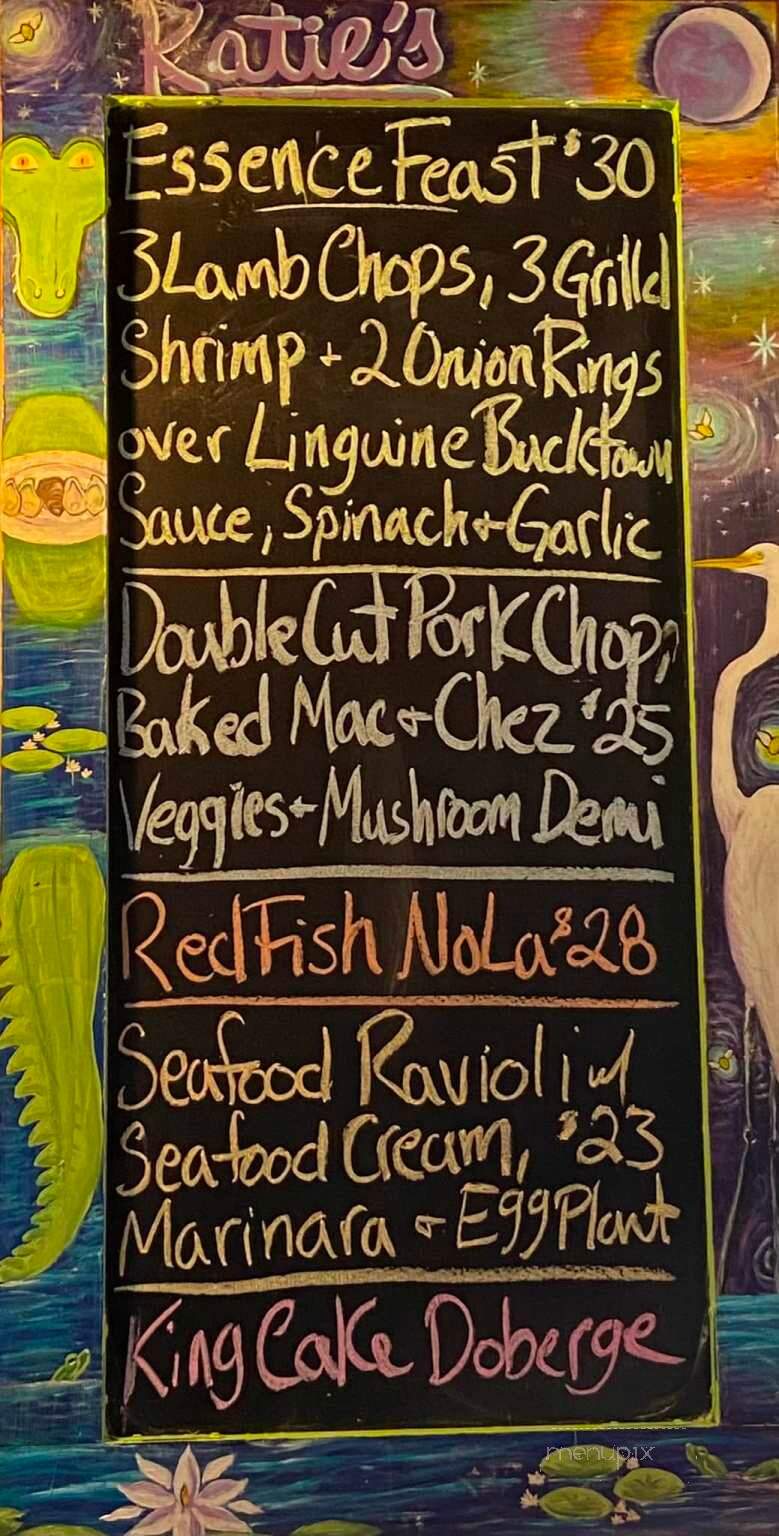 Katie's
Essence Feast $30
3 Lamb Chops, 3 Grilld
Shrimp + 2 Onion Rings
over Linguine Bucktown
Sauce, Spinach + Garlic
Double Cut Pork Chop,
Baked Mac + Chez $25
Veggies + Mushroom Demi
RedFish NoLa $28
Seafood Ravioli w/
Seafood Cream, $23
Marinara + EggPlant
King Cake Doberge
menupix